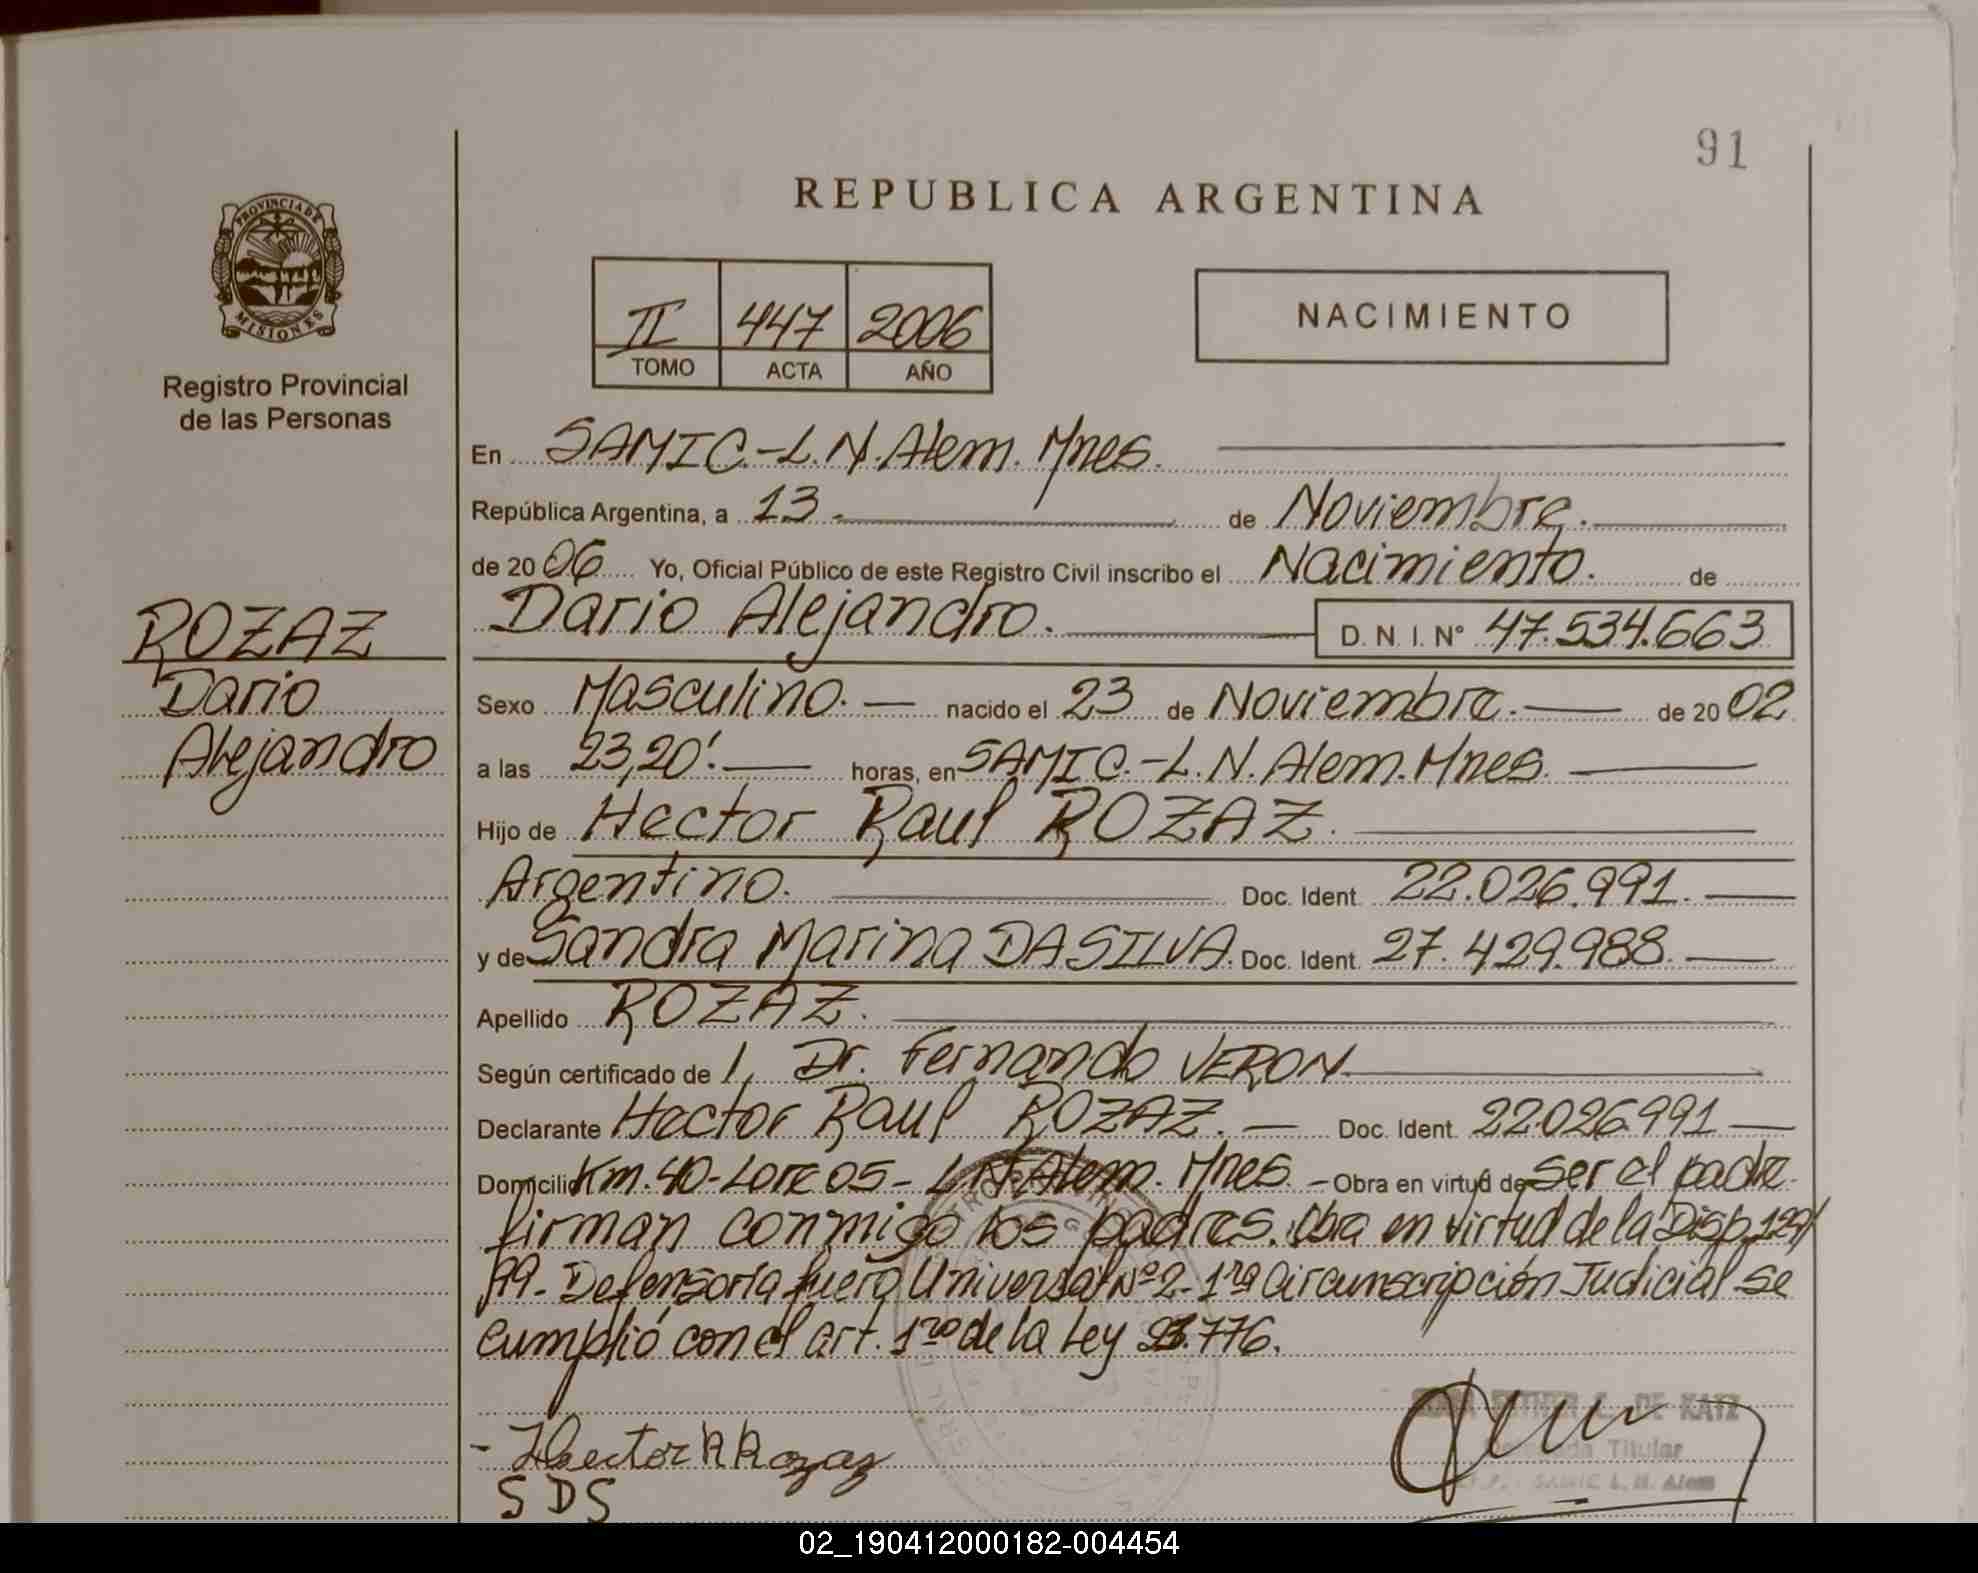 91
REPUBLICA ARGENTINA
PROVINCIA DE
MISIONES
Registro Provincial
de las Personas
II 447 2006
TOMO ACTA AÑO
NACIMIENTO
En SAMIC.-L.N.Alem. Mnes.
República Argentina, a 13.- de Noviembre.
de 2006 Yo, Oficial Público de este Registro Civil inscribo el Nacimiento. de
Dario Alejandro. D. N. I. N° 47.534.663
ROZAZ
Dario
Alejandro
Sexo Masculino. — nacido el 23 de Noviembre. — de 2002
a las 23,20'. — horas, en SAMIC.-L.N.Alem.Mnes.
Hijo de Hector Raul ROZAZ.
Argentino. Doc. Ident. 22.026.991.
y de Sandra Marina DA SILVA. Doc. Ident. 27.429.988.
Apellido ROZAZ.
Según certificado de 1, Dr. Fernando VERON
Declarante Hector Raul ROZAZ. — Doc. Ident. 22026991
Domicilio Km.40- - L N Alem. Mnes. - Obra en virtud de Ser el padre.
firman conmigo los padres. Obra en virtud de la Disp. 129/
99.- Defensoria fuero Universal Nº2-1ra Circunscripción Judicial se
cumplió con el art. 1ro de la Ley 23.776.
- Hector R Rozaz
SDS
ESTHER C. DE KATZ
Delegada Titular
SAMIC L. N. Alem
02_190412000182-004454